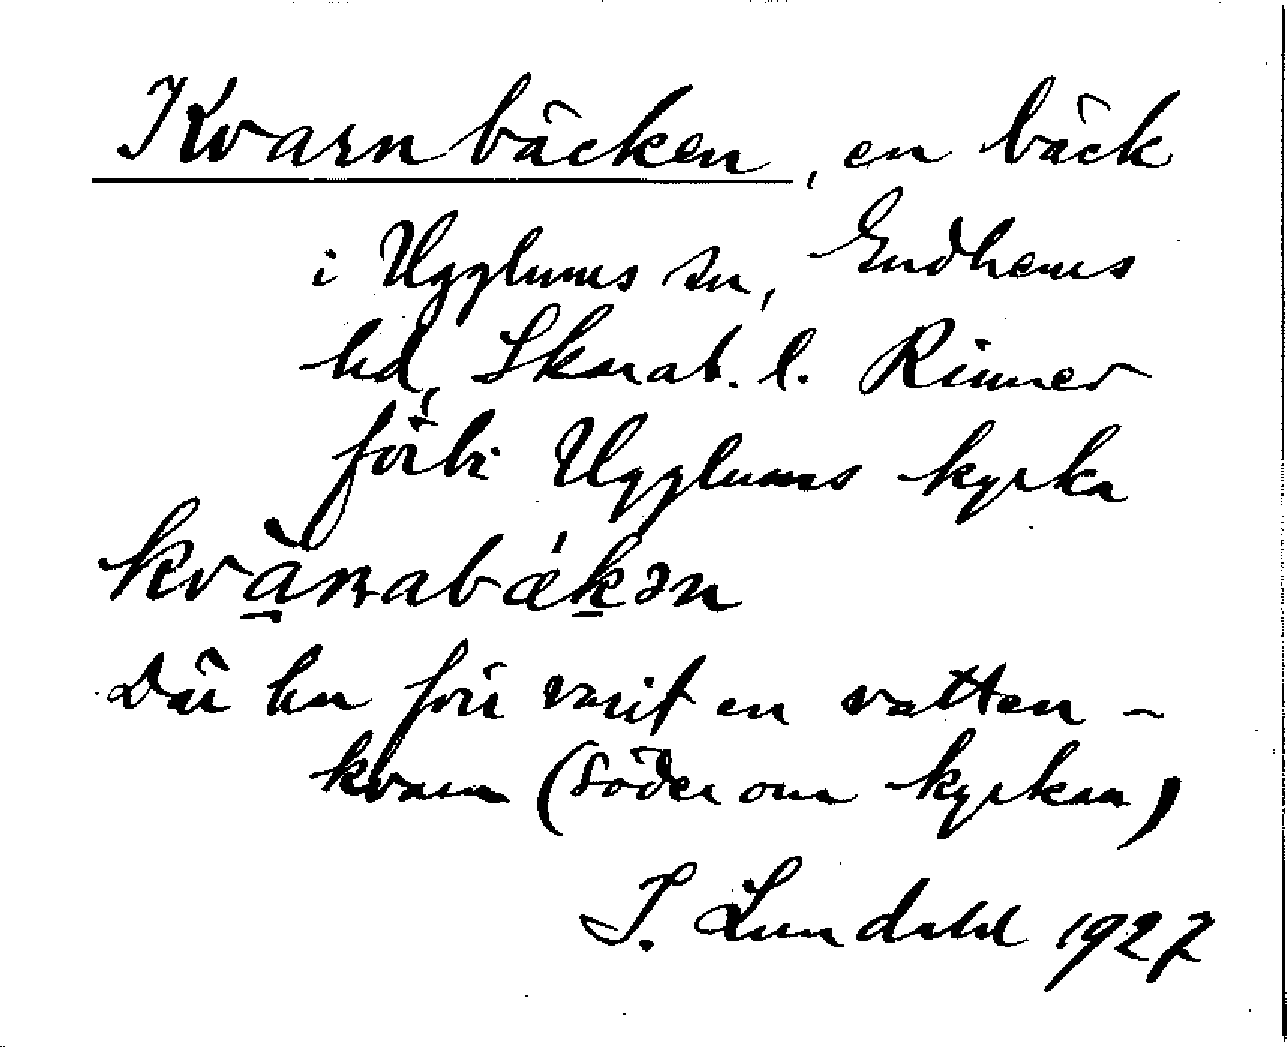 Kvarnbäcken, en bäck
i Ugglums sn, Gudhems
hd, Skarab. l. Rinner
förbi Ugglums kyrka
kvànabǽkən
Där har förr varit en vatten-
kvarn (söder om kyrkan)
I. Lundahl 1927